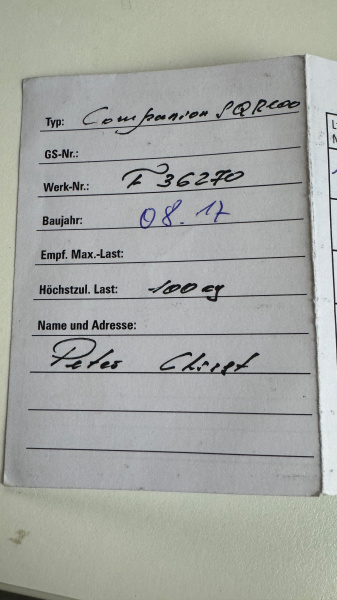 Typ: Companion SQR100
GS-Nr.:
Werk-Nr.: F 36270
Baujahr: 08.17
Empf. Max.-Last:
Höchstzul. Last: 100 kg
Name und Adresse:
Peter Christ